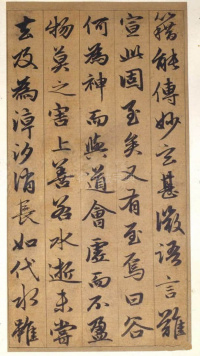 籍能傳妙之甚微語言雖
宣此固至矣又有至焉曰谷
何為神而與道會虛而不盈
物莫之害上善若水逝未嘗
去及為漳汐消長如代水雖